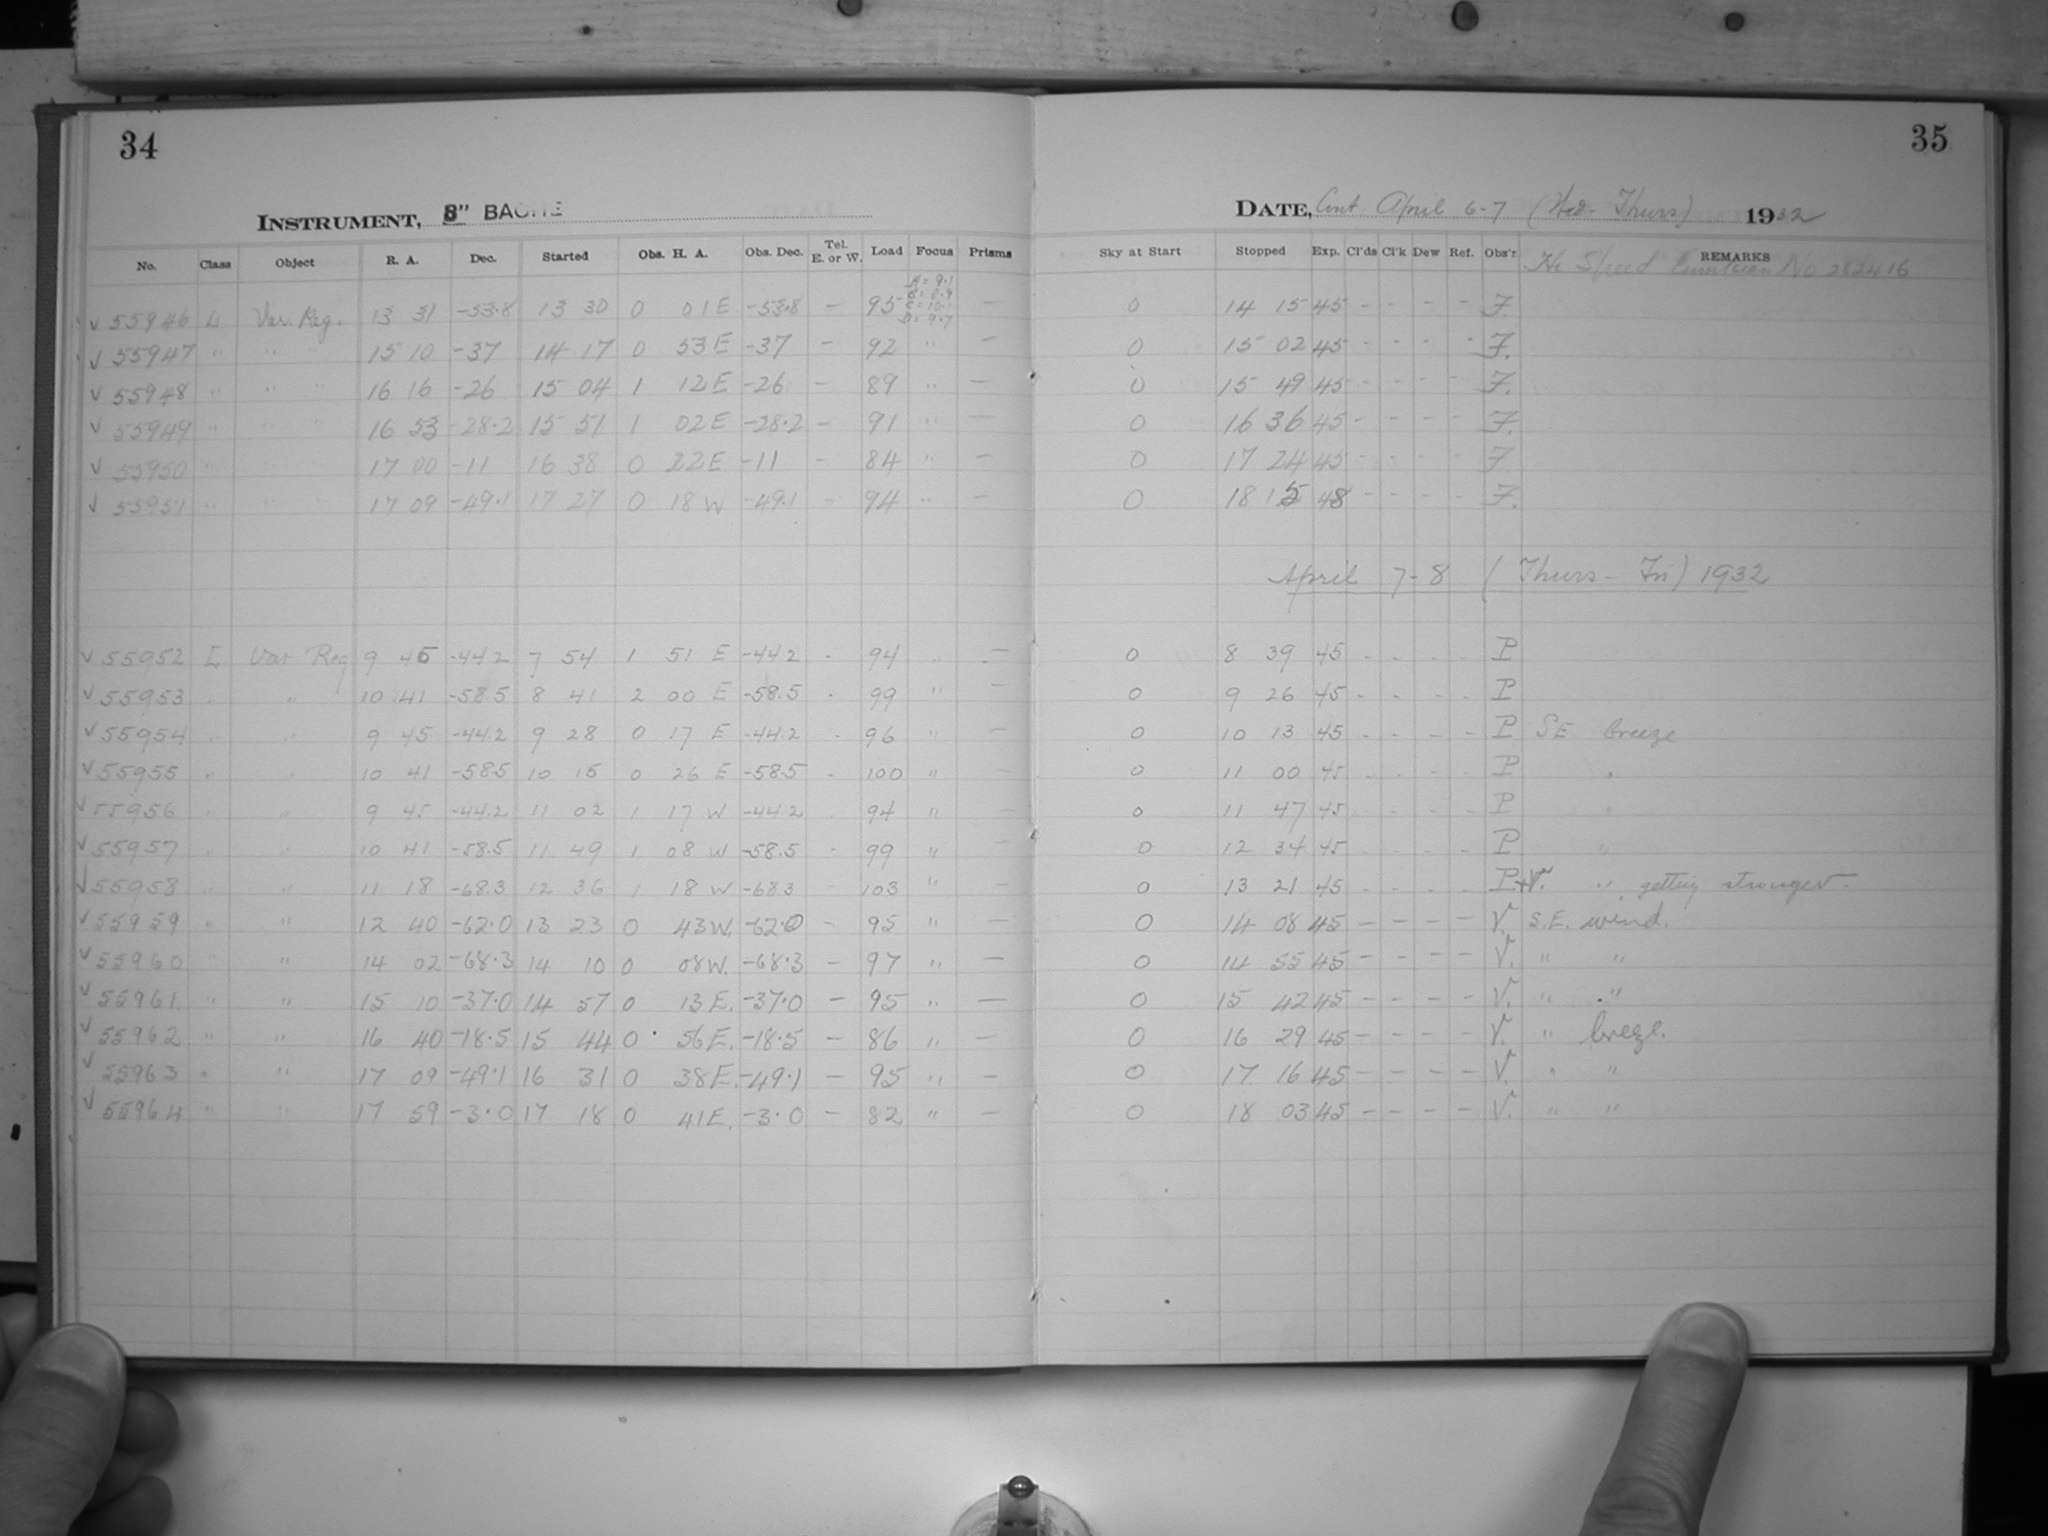 34
INSTRUMENT, 8" BACHE
No. Class Object R. A. Dec. Started Obs. H. A. Obs. Dec. Tel. E. or W. Load Focus Prisms
A = 9.1
B = 8.9
C = 10.1
D = 9.7
√ 55946 L Var. Reg. 13 31 -53.8 13 30 0 01 E -53.8 - 95 -
√ 55947 " " " 15 10 -37 14 17 0 53 E -37 - 92 " -
√ 55948 " " " 16 16 -26 15 04 1 12 E -26 - 89 " -
√ 55949 " " " 16 53 -28.2 15 51 1 02 E -28.2 - 91 " -
√ 55950 " " " 17 00 -11 16 38 0 22 E -11 - 84 " -
√ 55951 " " " 17 09 -49.1 17 27 0 18 W -49.1 - 94 " -
√ 55952 L Var Reg 9 45 -44.2 7 54 1 51 E -44.2 - 94 " -
√ 55953 " " 10 41 -58.5 8 41 2 00 E -58.5 - 99 " -
√ 55954 " " 9 45 -44.2 9 28 0 17 E -44.2 - 96 " -
√ 55955 " " 10 41 -58.5 10 15 0 26 E -58.5 - 100 " -
√ 55956 " " 9 45 -44.2 11 02 1 17 W -44.2 94 " -
√ 55957 " " 10 41 -58.5 11 49 1 08 W -58.5 - 99 " -
√ 55958 " " 11 18 -68.3 12 36 1 18 W -68.3 103 " -
√ 55959 " " 12 40 -62.0 13 23 0 43 W. -62.0 - 95 " -
√ 55960 " " 14 02 -68.3 14 10 0 08 W. -68.3 - 97 " -
√ 55961 " " 15 10 -37.0 14 57 0 13 E. -37.0 - 95 " -
√ 55962 " " 16 40 -18.5 15 44 0 56 E. -18.5 - 86 " -
√ 55963 " " 17 09 -49.1 16 31 0 38 E. -49.1 - 95 " -
√ 55964 " " 17 59 -3.0 17 18 0 41 E. -3.0 - 82 " -
35
DATE, Cont. April 6-7 (Wed-Thurs) 1932
Sky at Start Stopped Exp. Cl'ds Cl'k Dew Ref. Obs'r REMARKS
Hi Speed No 282416
0 14 15 45 - - - - F.
0 15 02 45 - - - - F.
0 15 49 45 - - - - F.
0 16 36 45 - - - - F.
0 17 24 45 - - - - F.
0 18 15 48 - - - - F.
April 7-8 (Thurs - Fri) 1932
0 8 39 45 - - - - P
0 9 26 45 - - - - P
0 10 13 45 - - - - P SE breeze
0 11 00 45 - - - - P "
0 11 47 45 - - - - P "
0 12 34 45 - - - - P "
0 13 21 45 - - - - P+V. " getting stronger.
0 14 08 45 - - - - V. S.E. wind.
0 14 55 45 - - - - V. " "
0 15 42 45 - - - - V. " "
0 16 29 45 - - - - V. " breeze.
0 17 16 45 - - - - V. " "
0 18 03 45 - - - - V. " "